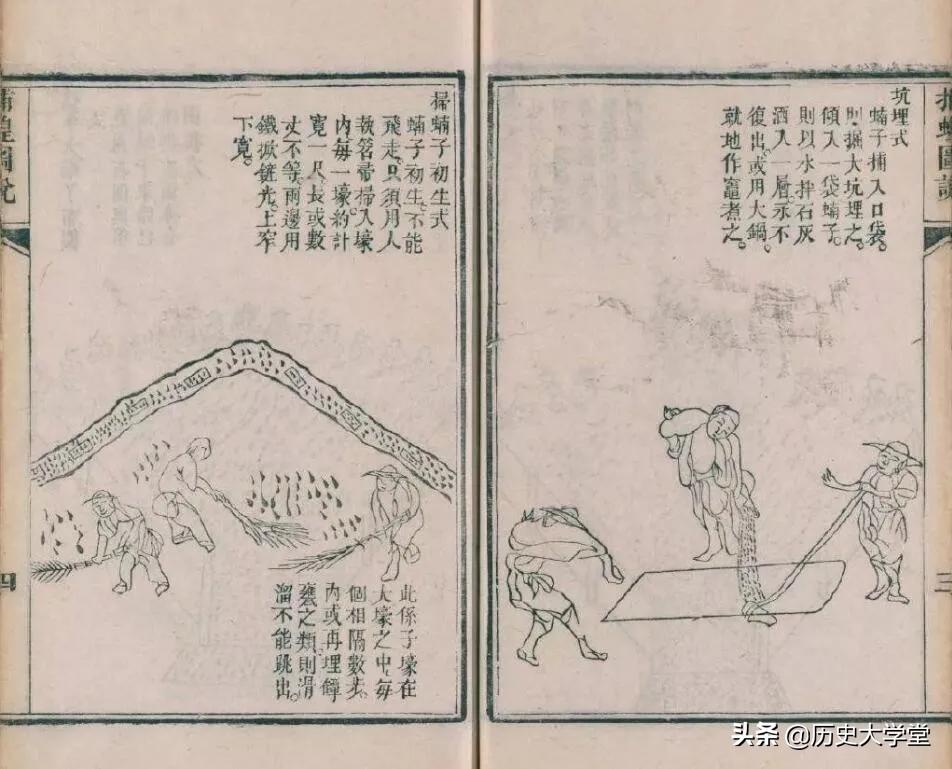 捕蝗圖說
三
坑埋式
蝻子捕入口袋。
則掘大坑埋之。
傾入一袋蝻子。
則以水拌石灰
洒入一層。永不
復出。或用大鍋。
就地作竈煮之。
掃蝻子初生式
蝻子初生。不能
飛走。只須用人
執笤帚掃入壕
內。每一壕。約計
寬一尺。長或數
丈不等。兩邊用
鐵掀鏟光。上窄
下寬。
此係子壕在
大壕之中。每
個相隔數步。
內或再埋罈
甕之類。則滑
溜不能跳出。
捕蝗圖說
四
头条 @历史大学堂